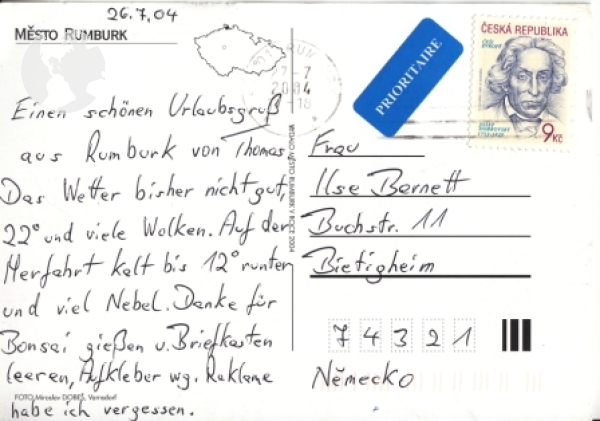 26.7.04
MĚSTO RUMBURK
ČESKÁ REPUBLIKA
PRIORITAIRE
9Kč
27-7
2004
-18
Einen schönen Urlaubsgruß
aus Rumburk von Thomas.
Das Wetter bisher nicht gut,
22° und viele Wolken. Auf der
Herfahrt kalt bis 12° runter
und viel Nebel. Danke für
Bonsai gießen u. Briefkasten
leeren, Aufkleber wg. Reklame
habe ich vergessen.
FOTO Miroslav DOBEŠ, Varnsdorf
VYDALO MĚSTO RUMBURK V ROCE 2004
Frau
Ilse Bernett
Buchstr. 11
Bietigheim
74321
Německo